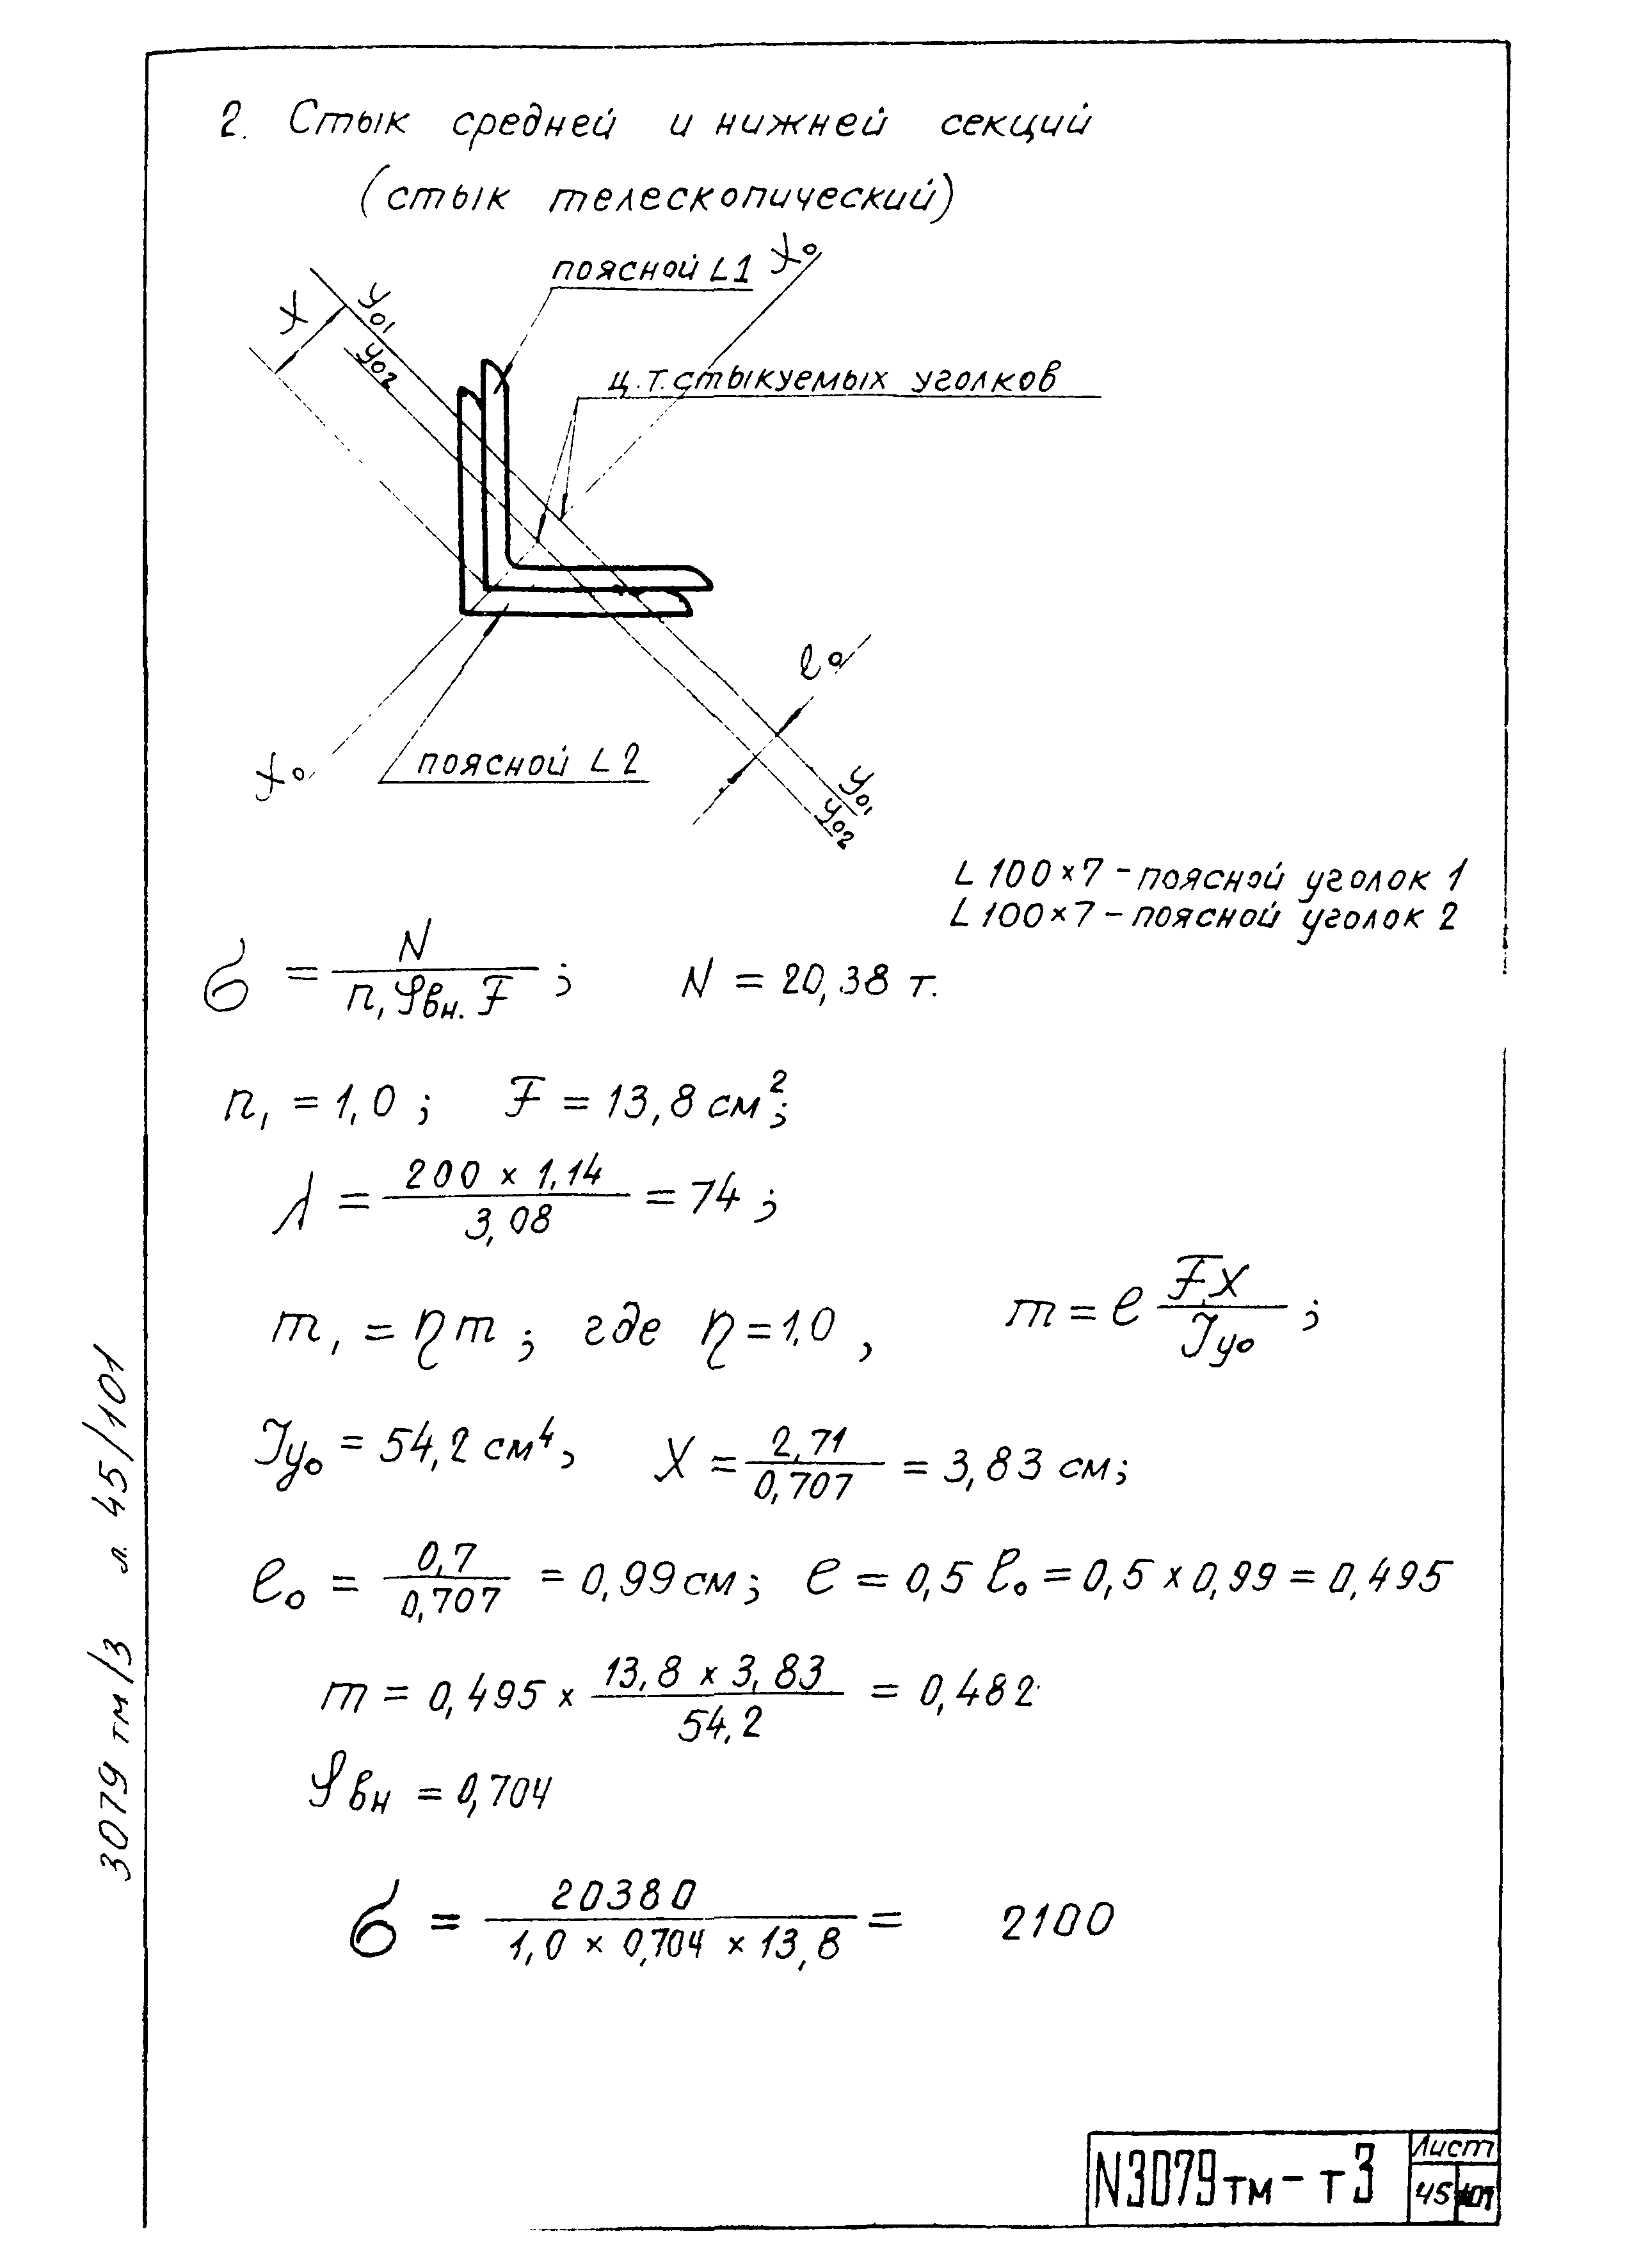 2. Стык средней и нижней секций
(стык телескопический)
поясной L1
x₀
x
y₀₁
y₀₂
ц.т. стыкуемых уголков
l₀
x₀
поясной L2
y₀₁
y₀₂
L 100×7 - поясной уголок 1
L 100×7 - поясной уголок 2
σ = N / (n₁ φвн. F) ; N = 20,38 т.
n₁ = 1,0 ; F = 13,8 см²;
λ = (200 × 1,14) / 3,08 = 74 ;
m₁ = η m ; где η = 1,0 , m = e Fx / Jy₀ ;
Jy₀ = 54,2 см⁴, X = 2,71 / 0,707 = 3,83 см;
e₀ = 0,7 / 0,707 = 0,99 см; e = 0,5 e₀ = 0,5 × 0,99 = 0,495
m = 0,495 × (13,8 × 3,83) / 54,2 = 0,482
φвн = 0,704
σ = 20380 / (1,0 × 0,704 × 13,8) = 2100
3079 тм/3 л. 45/101
N3079тм-т3
Лист
45